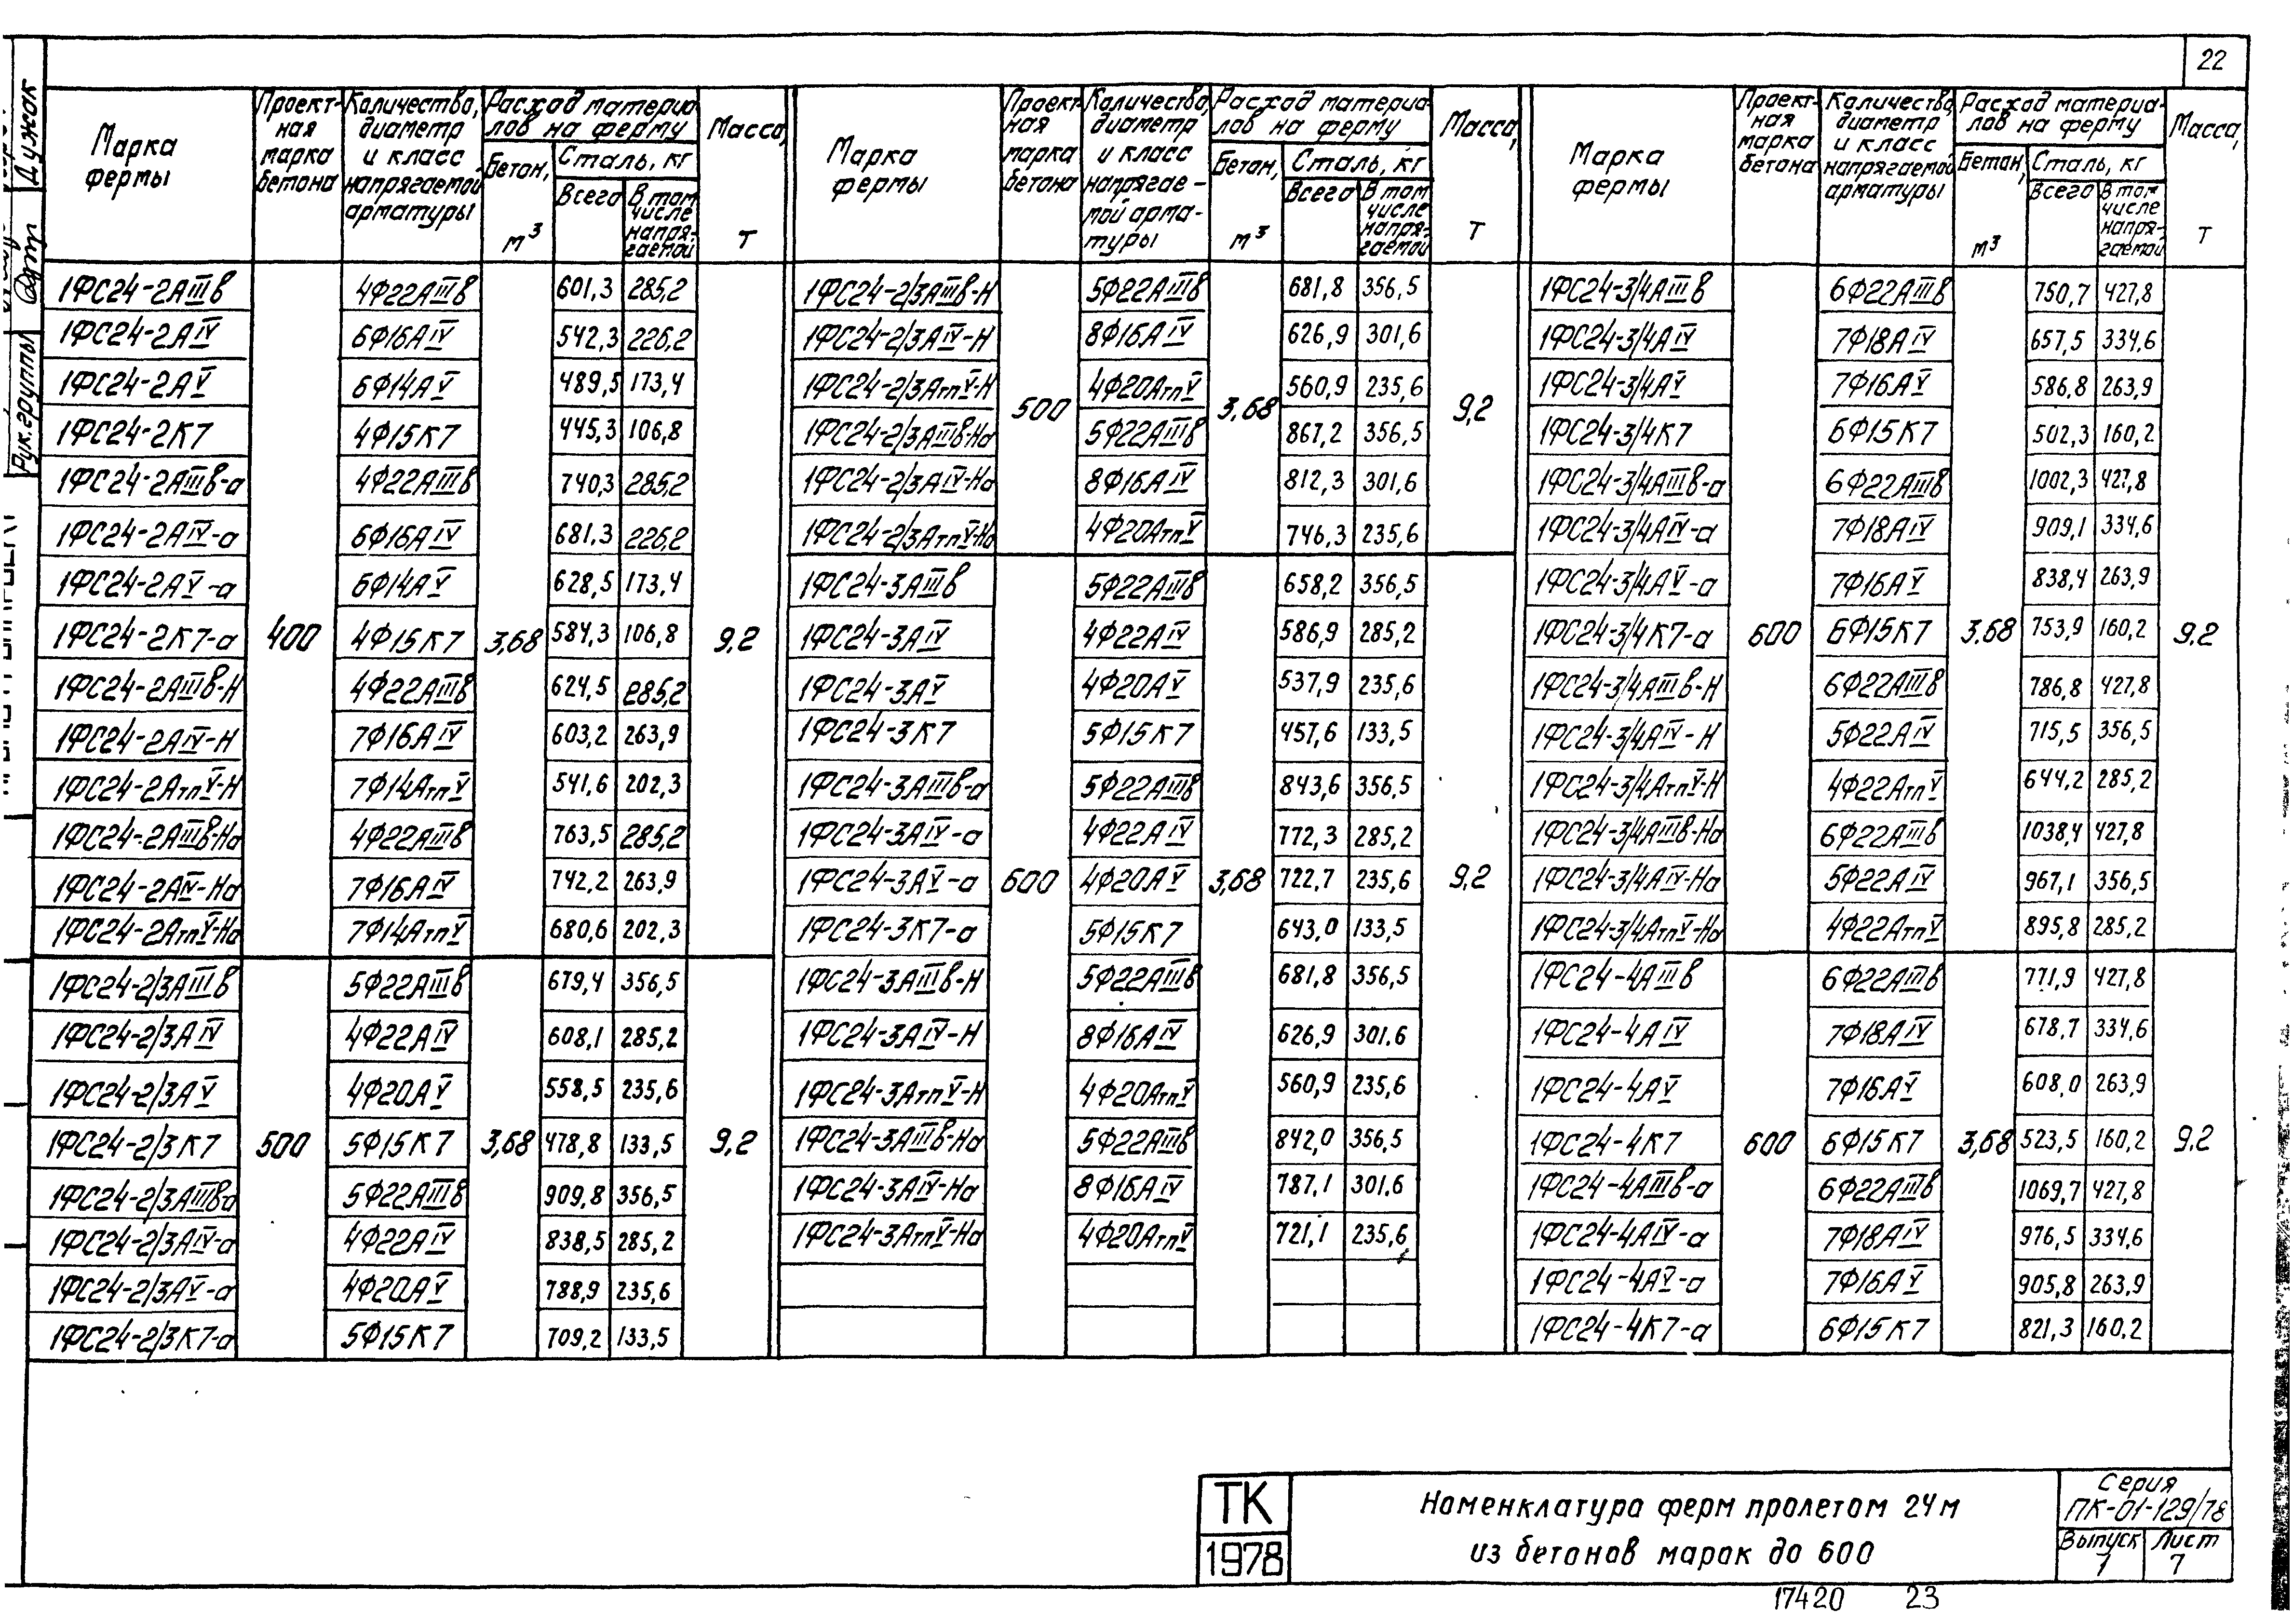 22
Марка фермы | Проектная марка бетона | Количество, диаметр и класс напрягаемой арматуры | Расход материалов на ферму | Бетон, м³ | Сталь, кг | Всего | В том числе напрягаемой | Масса, т
1ФС24-2АIIIв 4Ф22АIIIв 601,3 285,2
1ФС24-2АIV 6Ф16АIV 542,3 226,2
1ФС24-2АV 6Ф14АV 489,5 173,4
1ФС24-2К7 4Ф15К7 445,3 106,8
1ФС24-2АIIIв-а 4Ф22АIIIв 740,3 285,2
1ФС24-2АIV-а 6Ф16АIV 681,3 226,2
1ФС24-2АV-а 6Ф14АV 628,5 173,4
1ФС24-2К7-а 400 4Ф15К7 3,68 584,3 106,8 9,2
1ФС24-2АIIIв-Н 4Ф22АIIIв 624,5 285,2
1ФС24-2АIV-Н 7Ф16АIV 603,2 263,9
1ФС24-2АтпV-Н 7Ф14АтпV 541,6 202,3
1ФС24-2АIIIв-На 4Ф22АIIIв 763,5 285,2
1ФС24-2АIV-На 7Ф16АIV 742,2 263,9
1ФС24-2АтпV-На 7Ф14АтпV 680,6 202,3
1ФС24-2/3АIIIв 5Ф22АIIIв 679,4 356,5
1ФС24-2/3АIV 4Ф22АIV 608,1 285,2
1ФС24-2/3АV 4Ф20АV 558,5 235,6
1ФС24-2/3К7 500 5Ф15К7 3,68 478,8 133,5 9,2
1ФС24-2/3АIIIв-а 5Ф22АIIIв 909,8 356,5
1ФС24-2/3АIV-а 4Ф22АIV 838,5 285,2
1ФС24-2/3АV-а 4Ф20АV 788,9 235,6
1ФС24-2/3К7-а 5Ф15К7 709,2 133,5
Марка фермы | Проектная марка бетона | Количество, диаметр и класс напрягаемой арматуры | Расход материалов на ферму | Бетон, м³ | Сталь, кг | Всего | В том числе напрягаемой | Масса, т
1ФС24-2/3АIIIв-Н 5Ф22АIIIв 681,8 356,5
1ФС24-2/3АIV-Н 8Ф16АIV 626,9 301,6
1ФС24-2/3АтпV-Н 500 4Ф20АтпV 3,68 560,9 235,6 9,2
1ФС24-2/3АIIIв-На 5Ф22АIIIв 867,2 356,5
1ФС24-2/3АIV-На 8Ф16АIV 812,3 301,6
1ФС24-2/3АтпV-На 4Ф20АтпV 746,3 235,6
1ФС24-3АIIIв 5Ф22АIIIв 658,2 356,5
1ФС24-3АIV 4Ф22АIV 586,9 285,2
1ФС24-3АV 4Ф20АV 537,9 235,6
1ФС24-3К7 5Ф15К7 457,6 133,5
1ФС24-3АIIIв-а 5Ф22АIIIв 843,6 356,5
1ФС24-3АIV-а 4Ф22АIV 772,3 285,2
1ФС24-3АV-а 600 4Ф20АV 3,68 722,7 235,6 9,2
1ФС24-3К7-а 5Ф15К7 643,0 133,5
1ФС24-3АIIIв-Н 5Ф22АIIIв 681,8 356,5
1ФС24-3АIV-Н 8Ф16АIV 626,9 301.6
1ФС24-3АтпV-Н 4Ф20АтпV 560,9 235,6
1ФС24-3АIIIв-На 5Ф22АIIIв 842,0 356,5
1ФС24-3АIV-На 8Ф16АIV 787,1 301,6
1ФС24-3АтпV-На 4Ф20АтпV 721,1 235,6
Марка фермы | Проектная марка бетона | Количество, диаметр и класс напрягаемой арматуры | Расход материалов на ферму | Бетон, м³ | Сталь, кг | Всего | В том числе напрягаемой | Масса, т
1ФС24-3/4АIIIв 6Ф22АIIIв 750,7 427,8
1ФС24-3/4АIV 7Ф18АIV 657,5 334,6
1ФС24-3/4АV 7Ф16АV 586,8 263,9
1ФС24-3/4К7 6Ф15К7 502,3 160,2
1ФС24-3/4АIIIв-а 6Ф22АIIIв 1002,3 427,8
1ФС24-3/4АIV-а 7Ф18АIV 909,1 334,6
1ФС24-3/4АV-а 7Ф16АV 838,4 263,9
1ФС24-3/4К7-а 600 6Ф15К7 3,68 753,9 160,2 9,2
1ФС24-3/4АIIIв-Н 6Ф22АIIIв 786,8 427,8
1ФС24-3/4АIV-Н 5Ф22АIV 715,5 356,5
1ФС24-3/4АтпV-Н 4Ф22АтпV 644,2 285,2
1ФС24-3/4АIIIв-На 6Ф22АIIIв 1038,4 427,8
1ФС24-3/4АIV-На 5Ф22АIV 967,1 356,5
1ФС24-3/4АтпV-На 4Ф22АтпV 895,8 285,2
1ФС24-4АIIIв 6Ф22АIIIв 771,9 427,8
1ФС24-4АIV 7Ф18АIV 678,7 334,6
1ФС24-4АV 7Ф16АV 608,0 263,9
1ФС24-4К7 600 6Ф15К7 3,68 523,5 160,2 9.2
1ФС24-4АIIIв-а 6Ф22АIIIв 1069,7 427,8
1ФС24-4АIV-а 7Ф18АIV 976,5 334,6
1ФС24-4АV-а 7Ф16АV 905,8 263,9
1ФС24-4К7-а 6Ф15К7 821,3 160,2
Рук.группы Дужак
ТК
1978
Номенклатура ферм пролетом 24м
из бетонов марок до 600
Серия
ПК-01-129/78
Выпуск Лист
1 7
17420 23